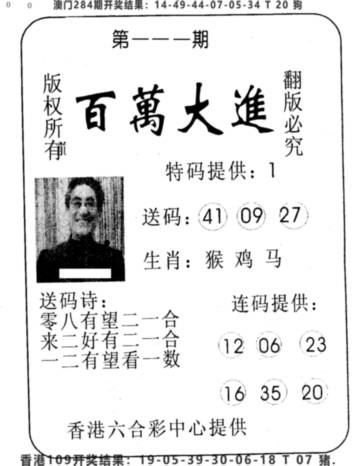 澳门284期开奖结果：14-49-44-07-05-34 T 20 狗
第一一一期
版权所有
百萬大進
翻版必究
特码提供：1
送码：41 09 27
生肖：猴 鸡 马
送码诗：
零八有望二一合
来二好有二一合
一二有望看一数
连码提供：
12 06 23
16 35 20
香港六合彩中心提供
香港109开奖结果：19-05-39-30-06-18 T 07 猪.